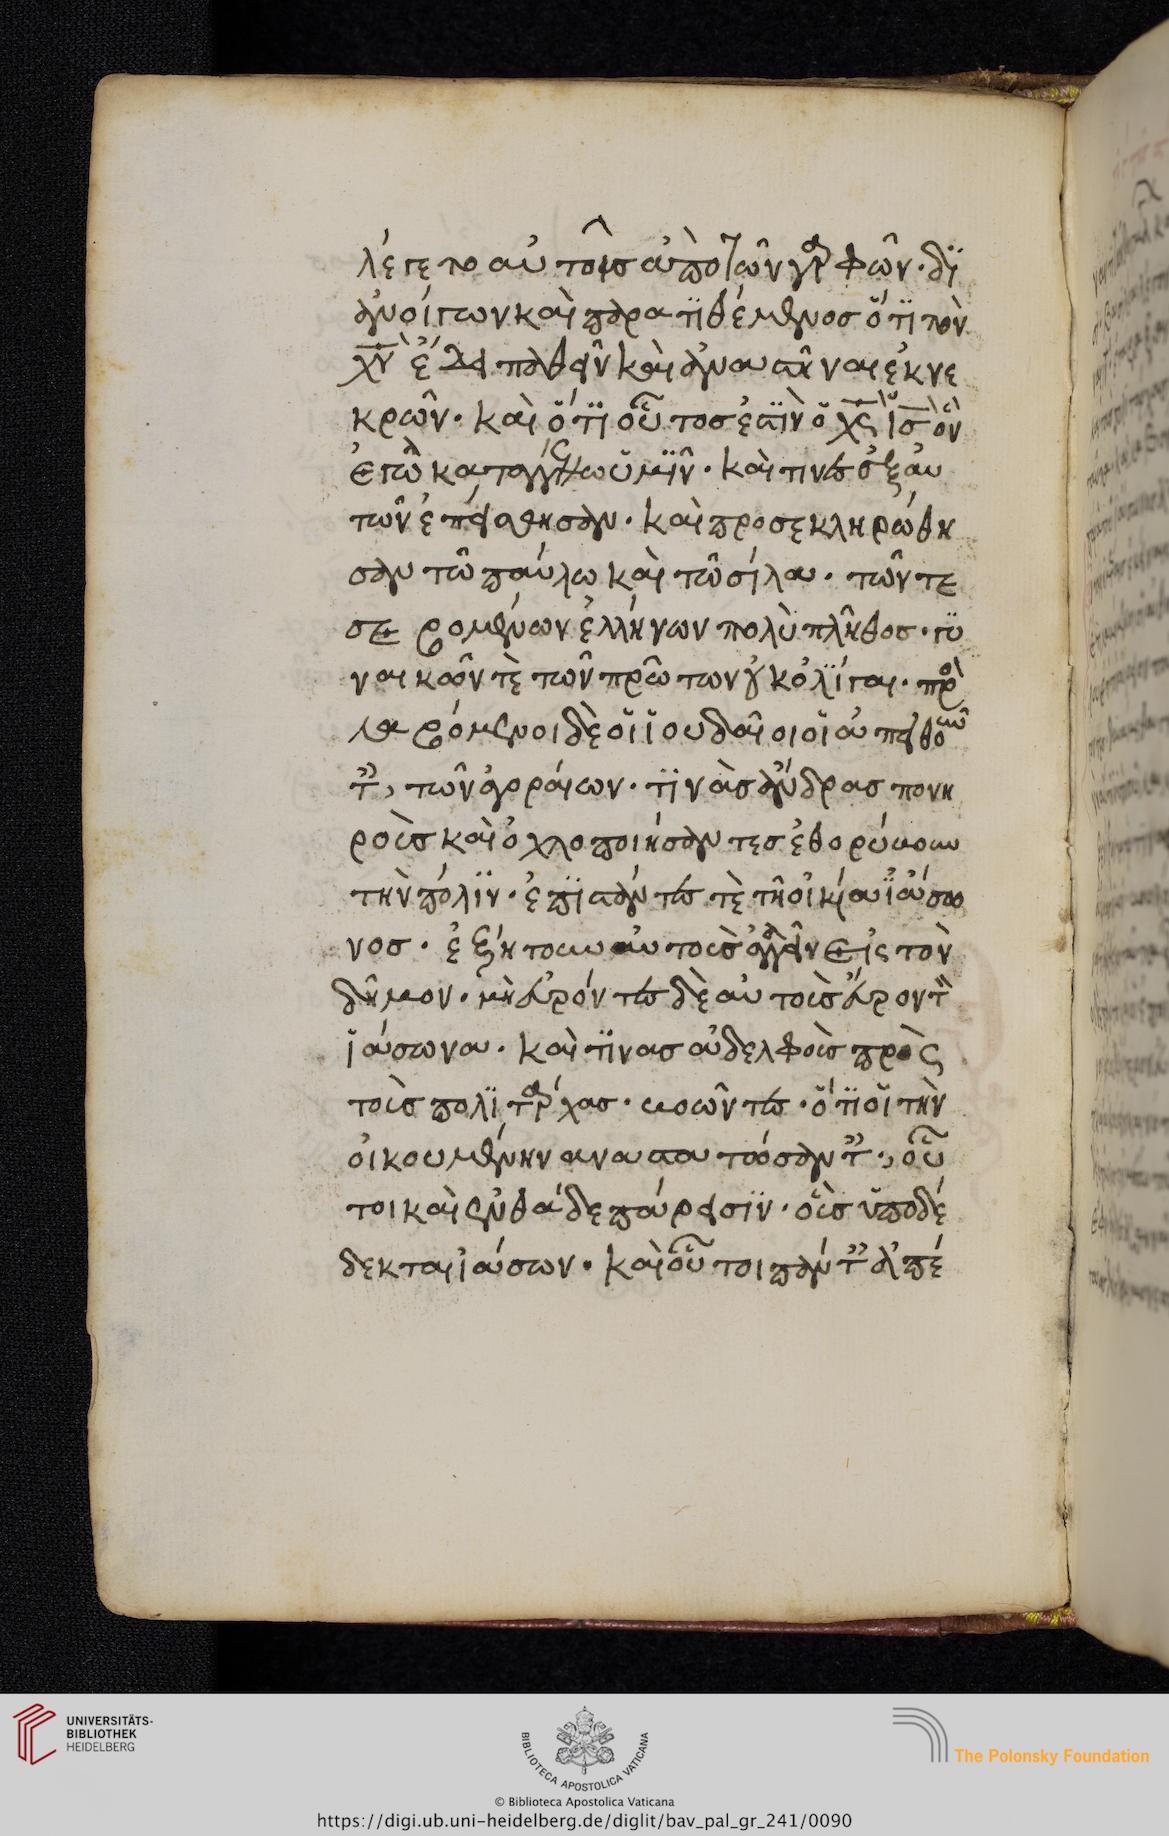 λέγετο αὐτοῖς ἀπὸ τῶν γραφῶν· δϊ
ανοίγων καὶ παρατϊθέμενος ὅτϊ τὸν
χν ἔδει παθεῖν καὶ ἀναστῆναι ἐκ νε
κρῶν· καὶ ὅτϊ οὗτος ἐστϊν ὁ χς ις ὃν
ἐγὼ καταγγέλλω ὑμϊν· καὶ τινὲς ἐξ αὐ
τῶν ἐπείσθησαν· καὶ προσεκληρώθη
σαν τῶ παύλω καὶ τῶ σίλα· τῶν τε
σεβομένων ἑλλήνων πολὺ πλῆθος· γϋ
ναικῶν τὲ τῶν πρώτων οὐκ ὀλϊγαι· προσ
λαβόμενοι δὲ οἱ ἰουδαῖοι οἱ ἀπειθοῦν
τες, τῶν ἀγοραίων· τϊνὰς ἄνδρας πονη
ροὺς καὶ ὀχλοποιήσαντες ἐθορύβουν
τὴν πόλϊν· ἐπϊστάντες τὲ τῆ οἰκία ἰάσο
νος· ἐζήτουν αὐτοὺς ἀγαγεῖν εἰς τὸν
δῆμον· μὴ εὑρόντες δὲ αὐτοὺς εὗρον τὸν
ἰάσωνα· καὶ τϊνας ἀδελφοὺς πρὸς
τοὺς πολϊτάρχας· βοῶντες· ὅτϊ οἱ τὴν
οἰκουμένην αναστατώσαντες, οὗ
τοι καὶ ἐνθάδε πάρεισϊν· οὓς ὑποδέ
δεκται ἰάσων· καὶ οὗτοι πάντες ἀπέ
UNIVERSITÄTS-
BIBLIOTHEK
HEIDELBERG
BIBLIOTECA APOSTOLICA VATICANA
© Biblioteca Apostolica Vaticana
The Polonsky Foundation
https://digi.ub.uni-heidelberg.de/diglit/bav_pal_gr_241/0090